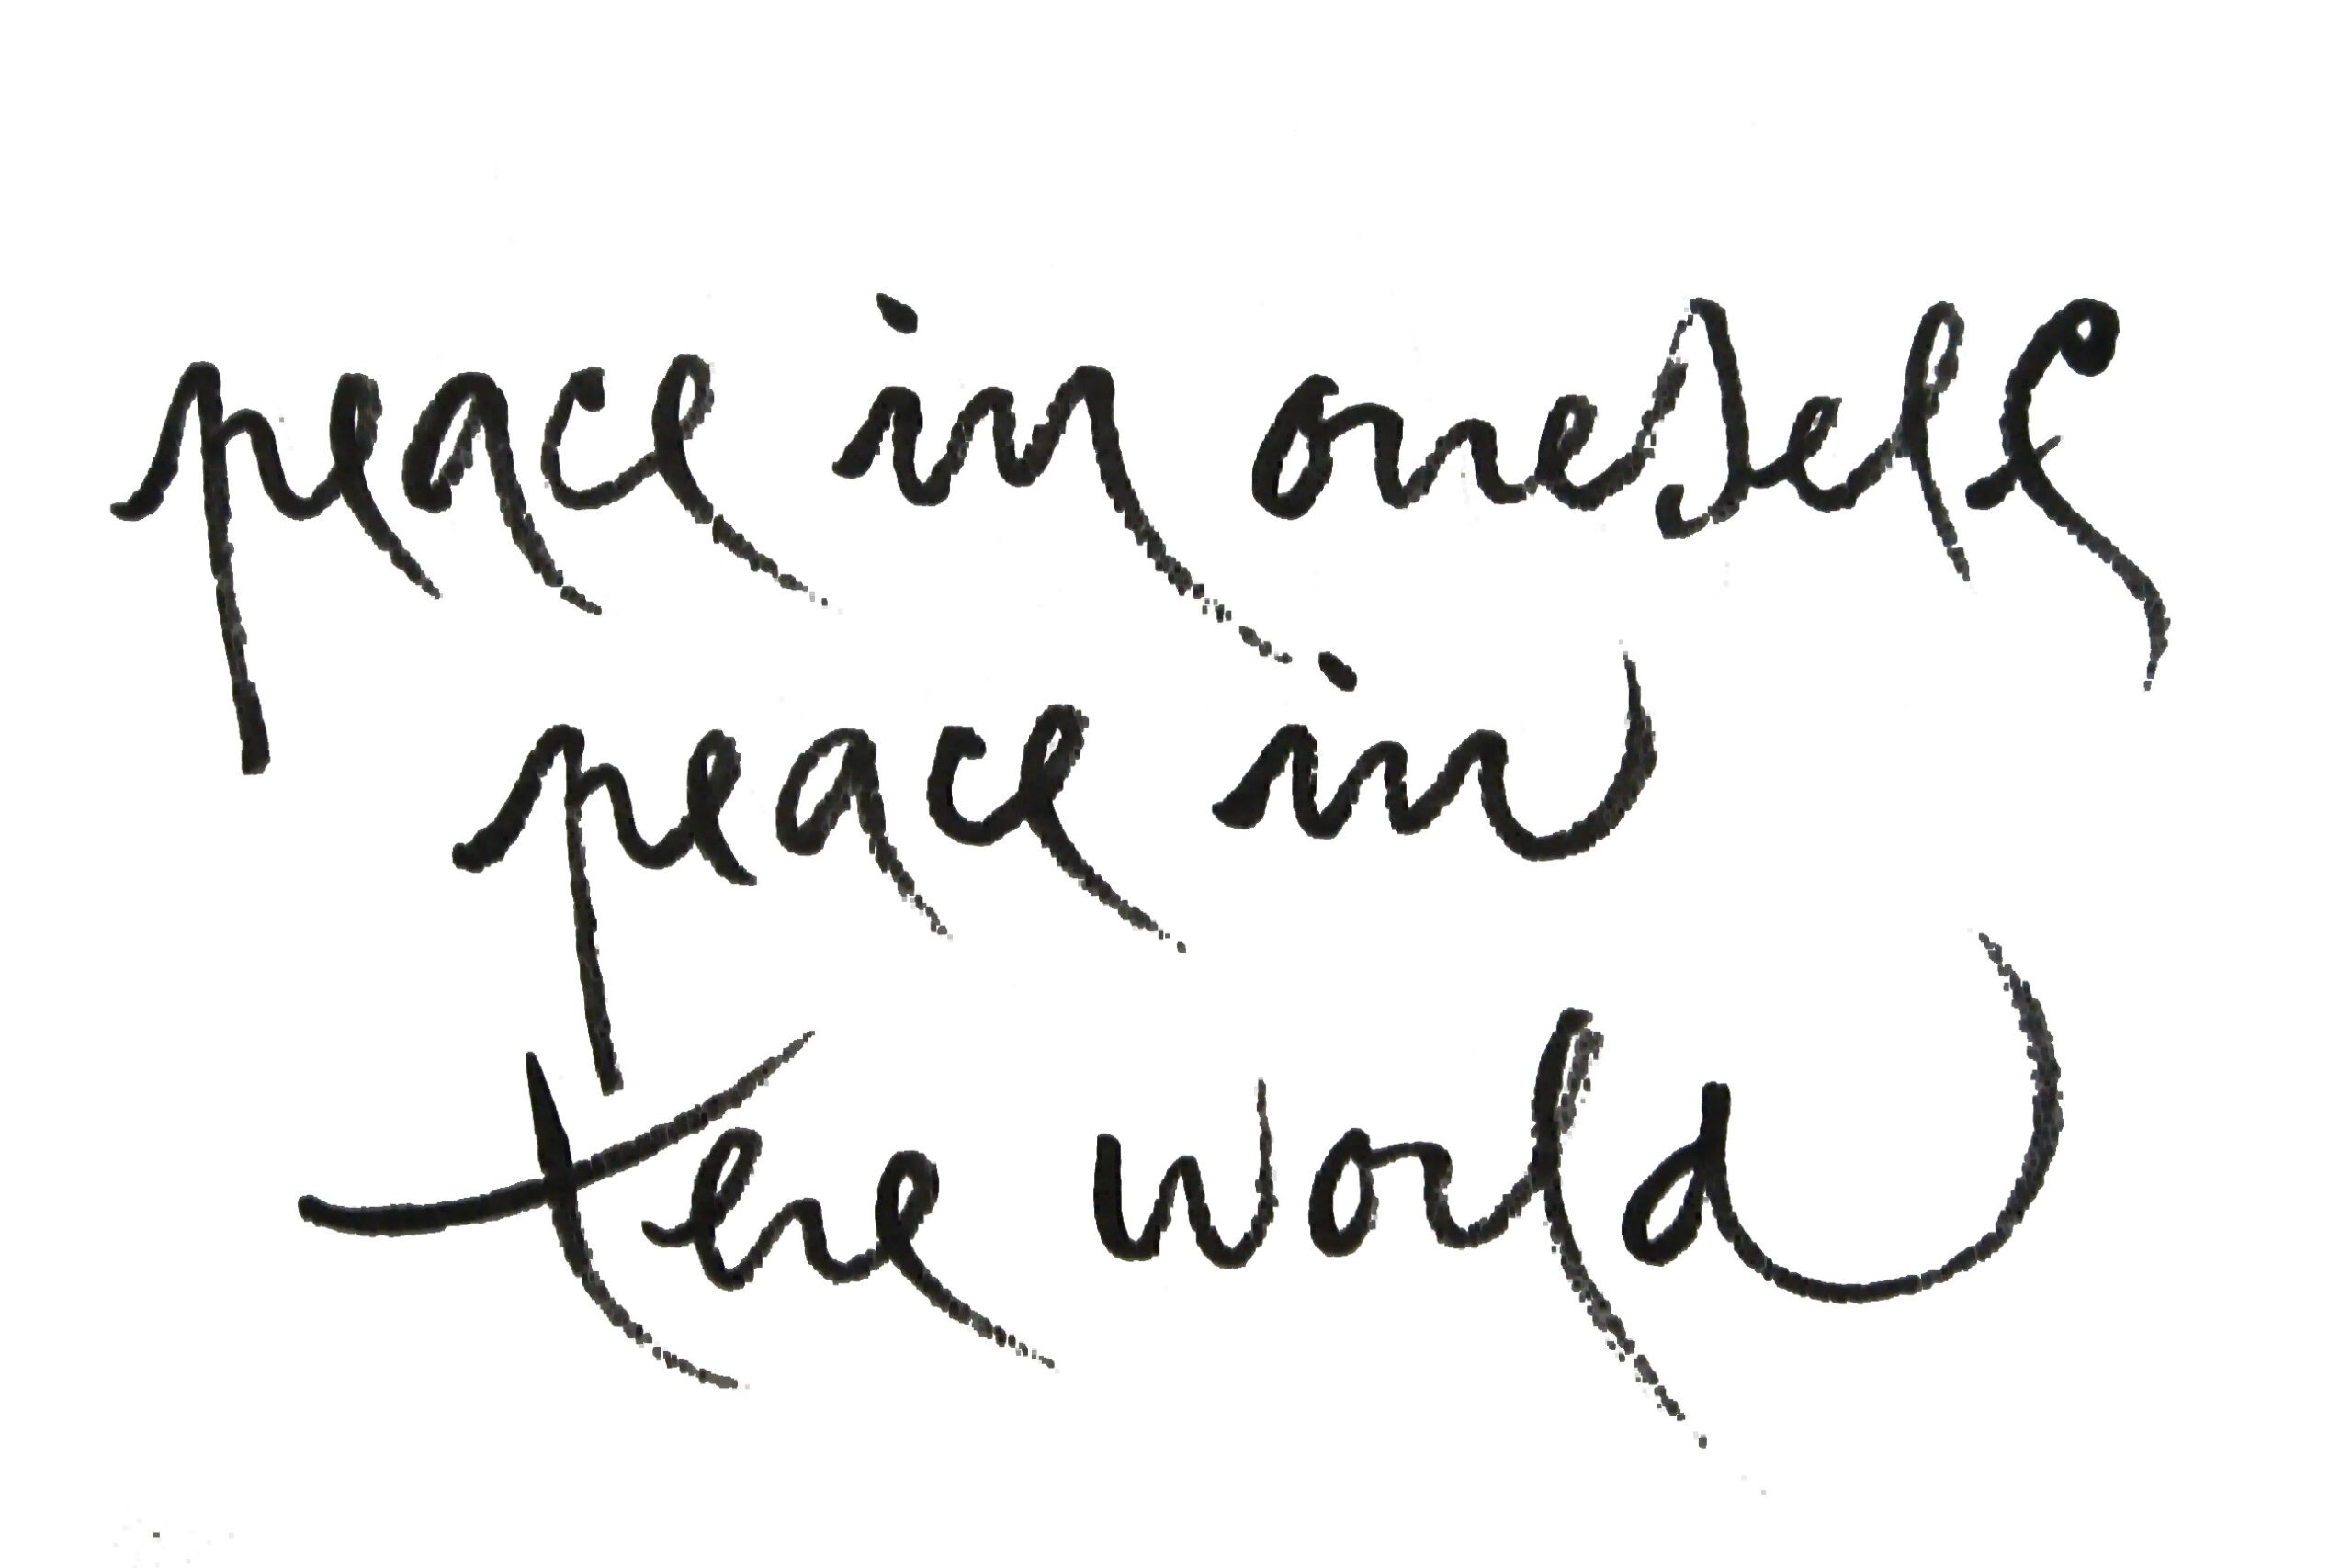 peace in oneself
peace in
the world